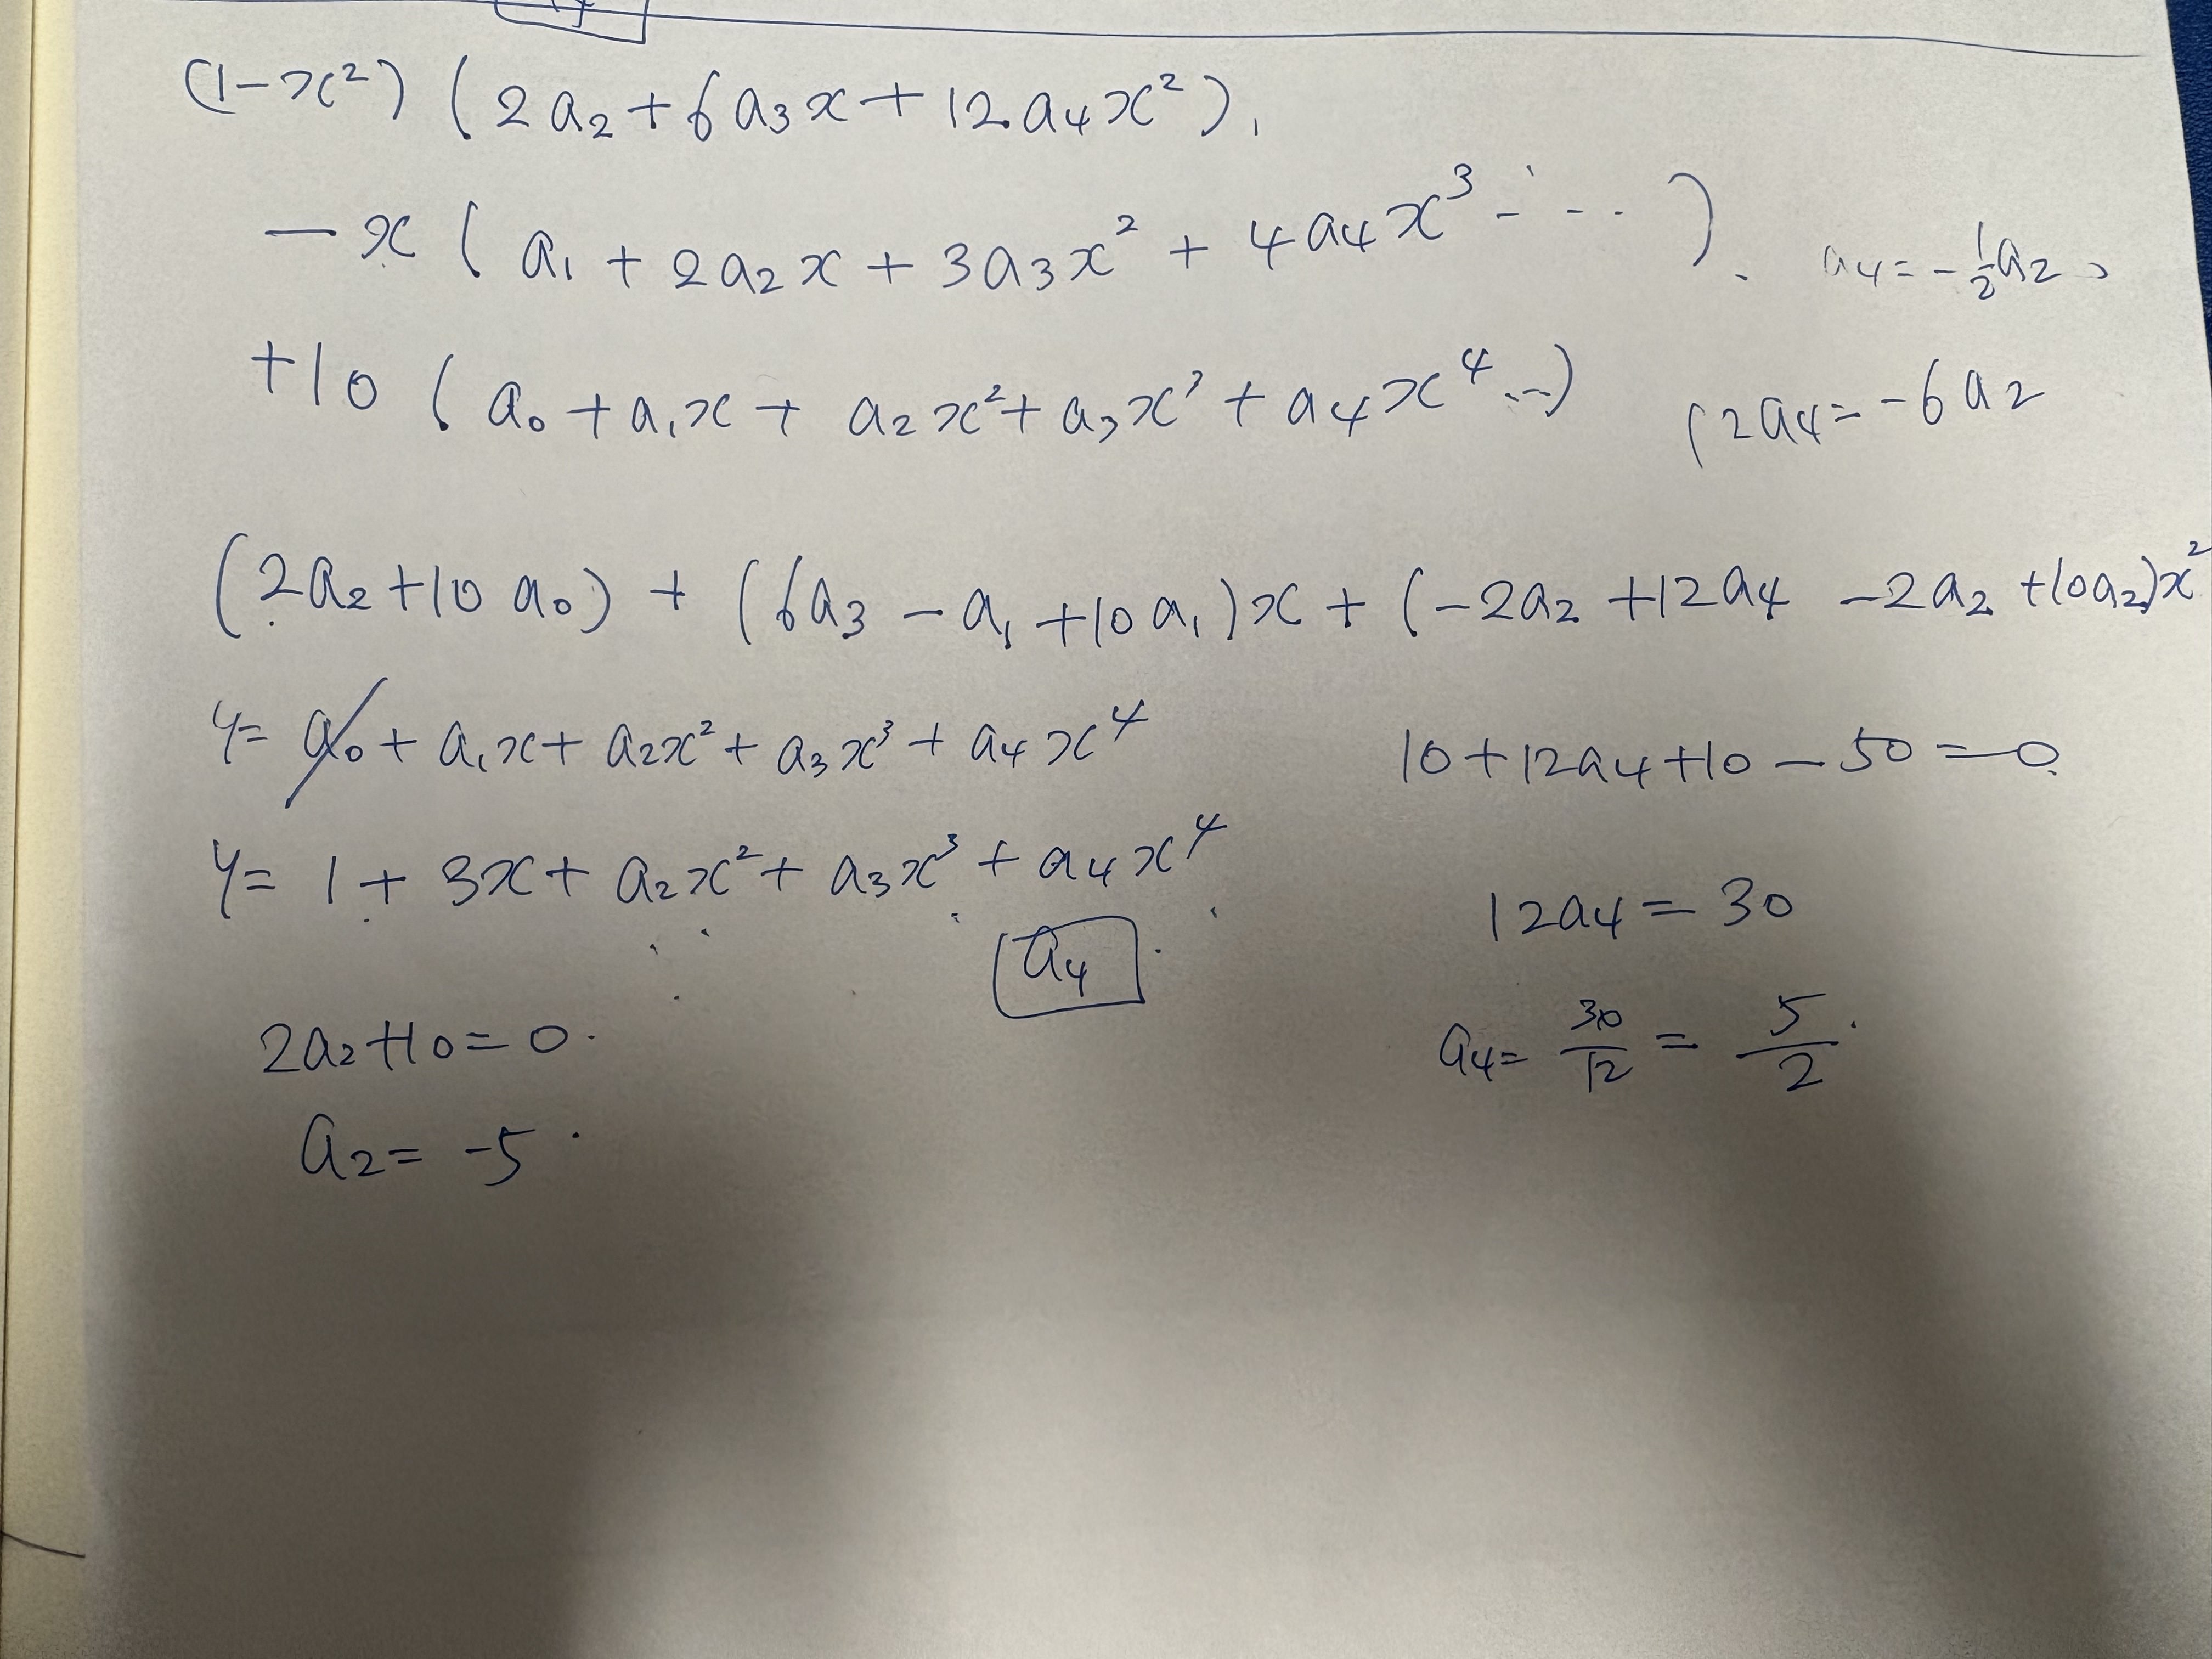 (1-x²) (2a₂+6a₃x+12a₄x²).
-x (a₁+2a₂x+3a₃x²+4a₄x³- - -- ).
a₄=-½a₂
+10 (a₀+a₁x+a₂x²+a₃x³+a₄x⁴..)
12a₄=-6a₂
(2a₂+10a₀)+(6a₃-a₁+10a₁)x+(-2a₂+12a₄-2a₂+10a₂)x²
y= a₀+a₁x+a₂x²+a₃x³+a₄x⁴
10+12a₄+10-50=0.
y= 1+3x+a₂x²+a₃x³+a₄x⁴
12a₄=30
a₄
2a₂+10=0.
a₄= 30/12 = 5/2.
a₂= -5.